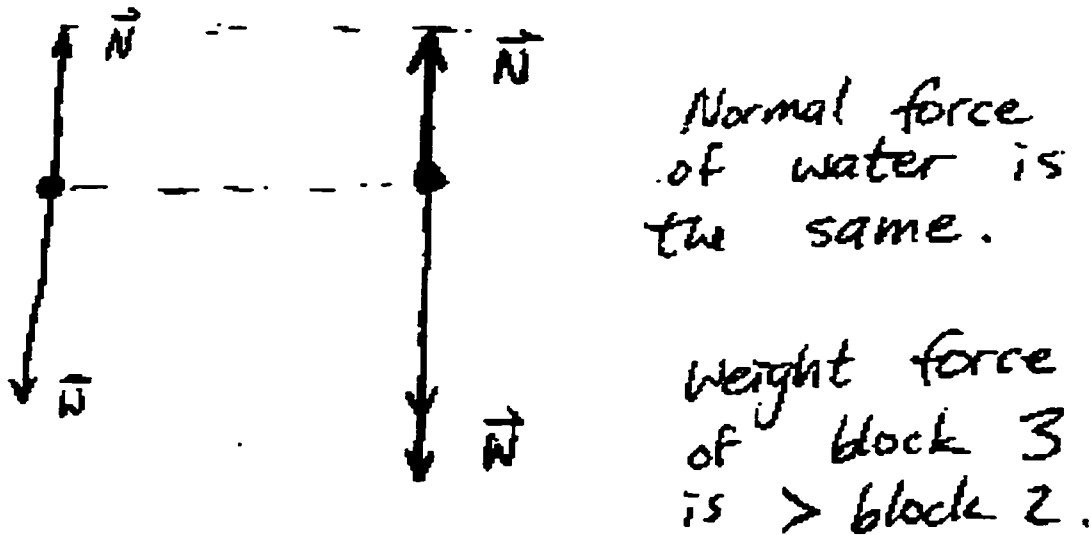 N⃗
N⃗
Normal force
of water is
the same.
W⃗
W⃗
Weight force
of block 3
is > block 2.